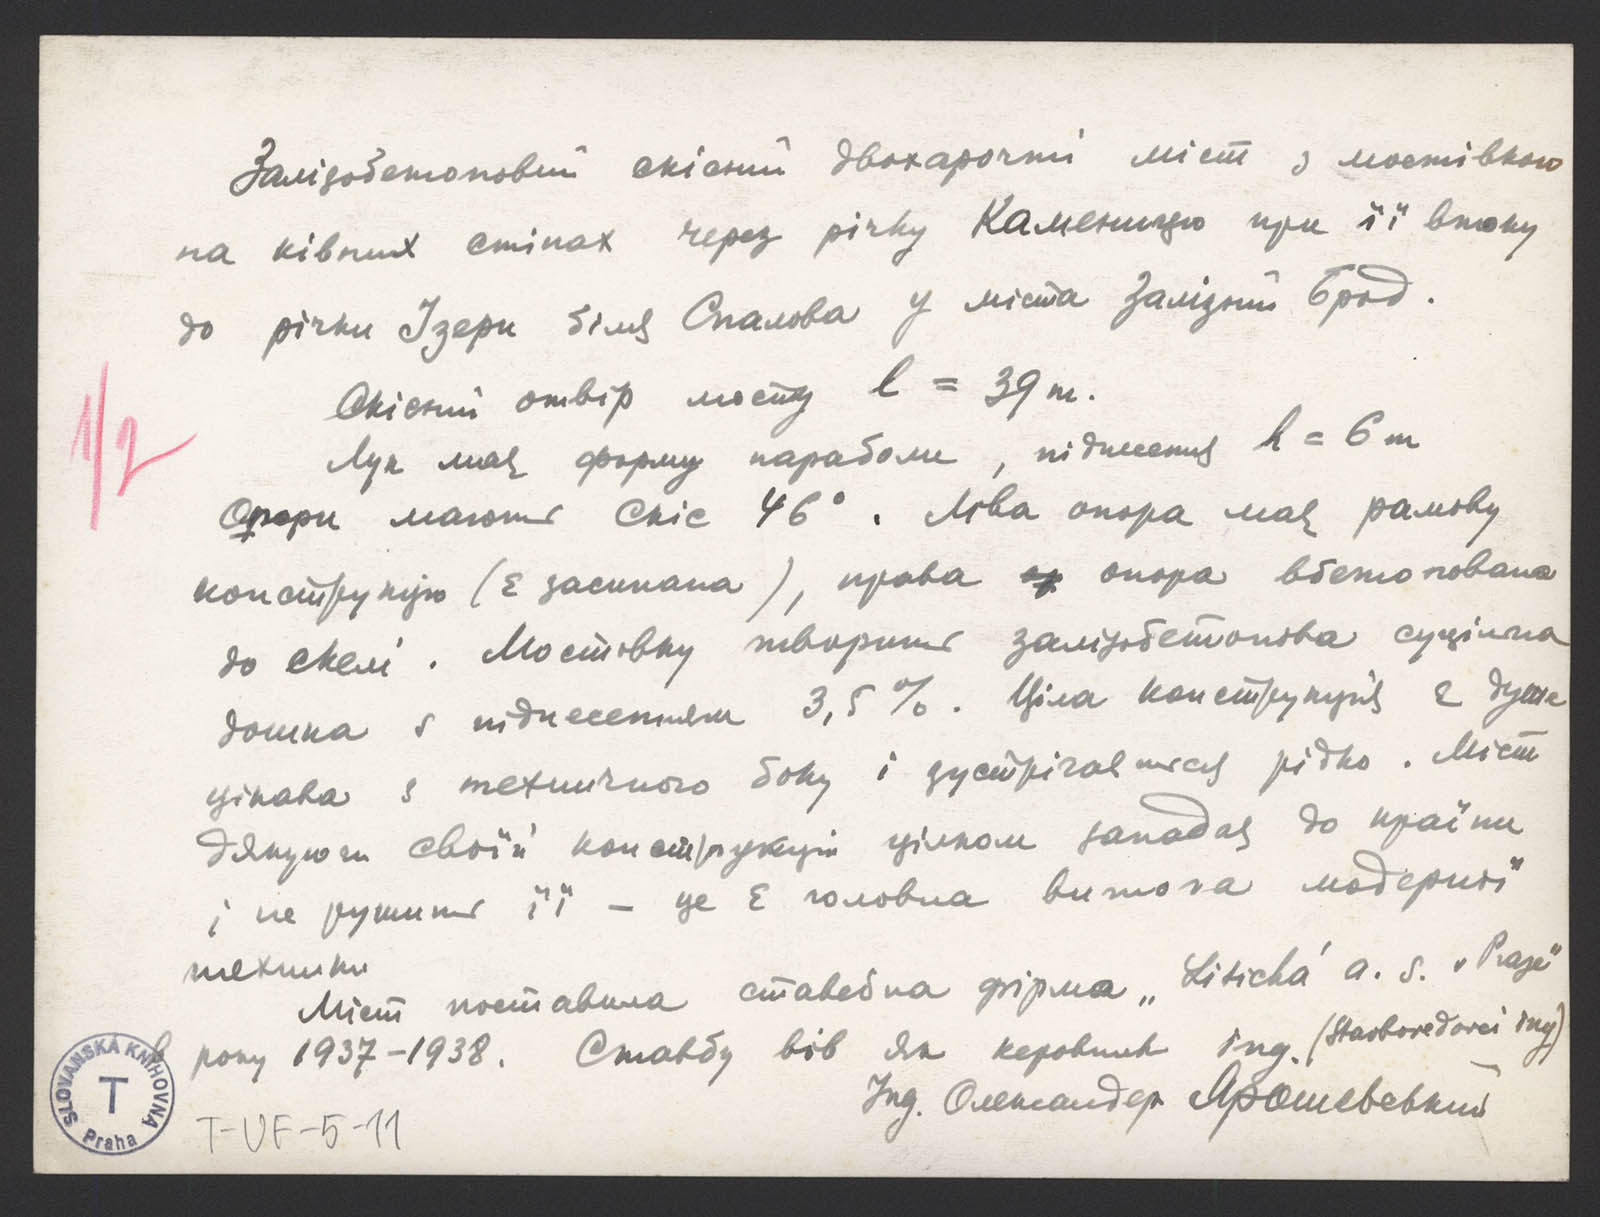 Залізобетоновий скісний двохарочні міст з мостівкою
на рівних стінах через річку Каменицю при її втоку
до річки Ізери біля Спалова у міста Залізний Брод.
Скісний отвір мосту l = 39 m.
Лук має форму параболи, піднесення h = 6 m
Опори мають скіс 46°. Ліва опора має рамову
конструкцію (є засипана), права опора вбетонована
до скелі. Мостовку творить залізобетонова суцільна
дошка з піднесенням 3,5 %. Ціла конструкція є дуже
цікава з технічного боку і зустрічається рідко. Міст
дякуючи своїй конструкції цілком западає до країни
і не рушить її – це є головна вимога модерної
техніки
Міст поставила ставебна фірма „Litická a. s. v Praze"
в року 1937-1938. Ставбу вів як керовник ing. (Stavboredovci ing)
Ing. Олександер Ярошевський
1/2
SLOVANSKÁ KNIHOVNA
T
Praha
T-UF-5-11